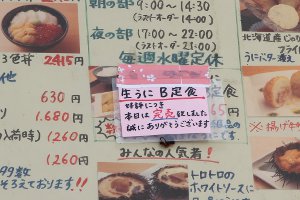 朝の部 9:00~14:30
(ラストオーダー14:00)
夜の部 17:00~22:00
(ラストオーダー21:
毎週水曜定休
3色丼 2415円
北海道産じゃ
うにバター
他
630円
1,680円
入荷時) 1,260円
1,260円
生うに B定食
好評につき
本日は完売致しました
誠にありがとうございます
※
みんなの人気者!
トロトロの
ホワイトソースに
99数
そろえております!!